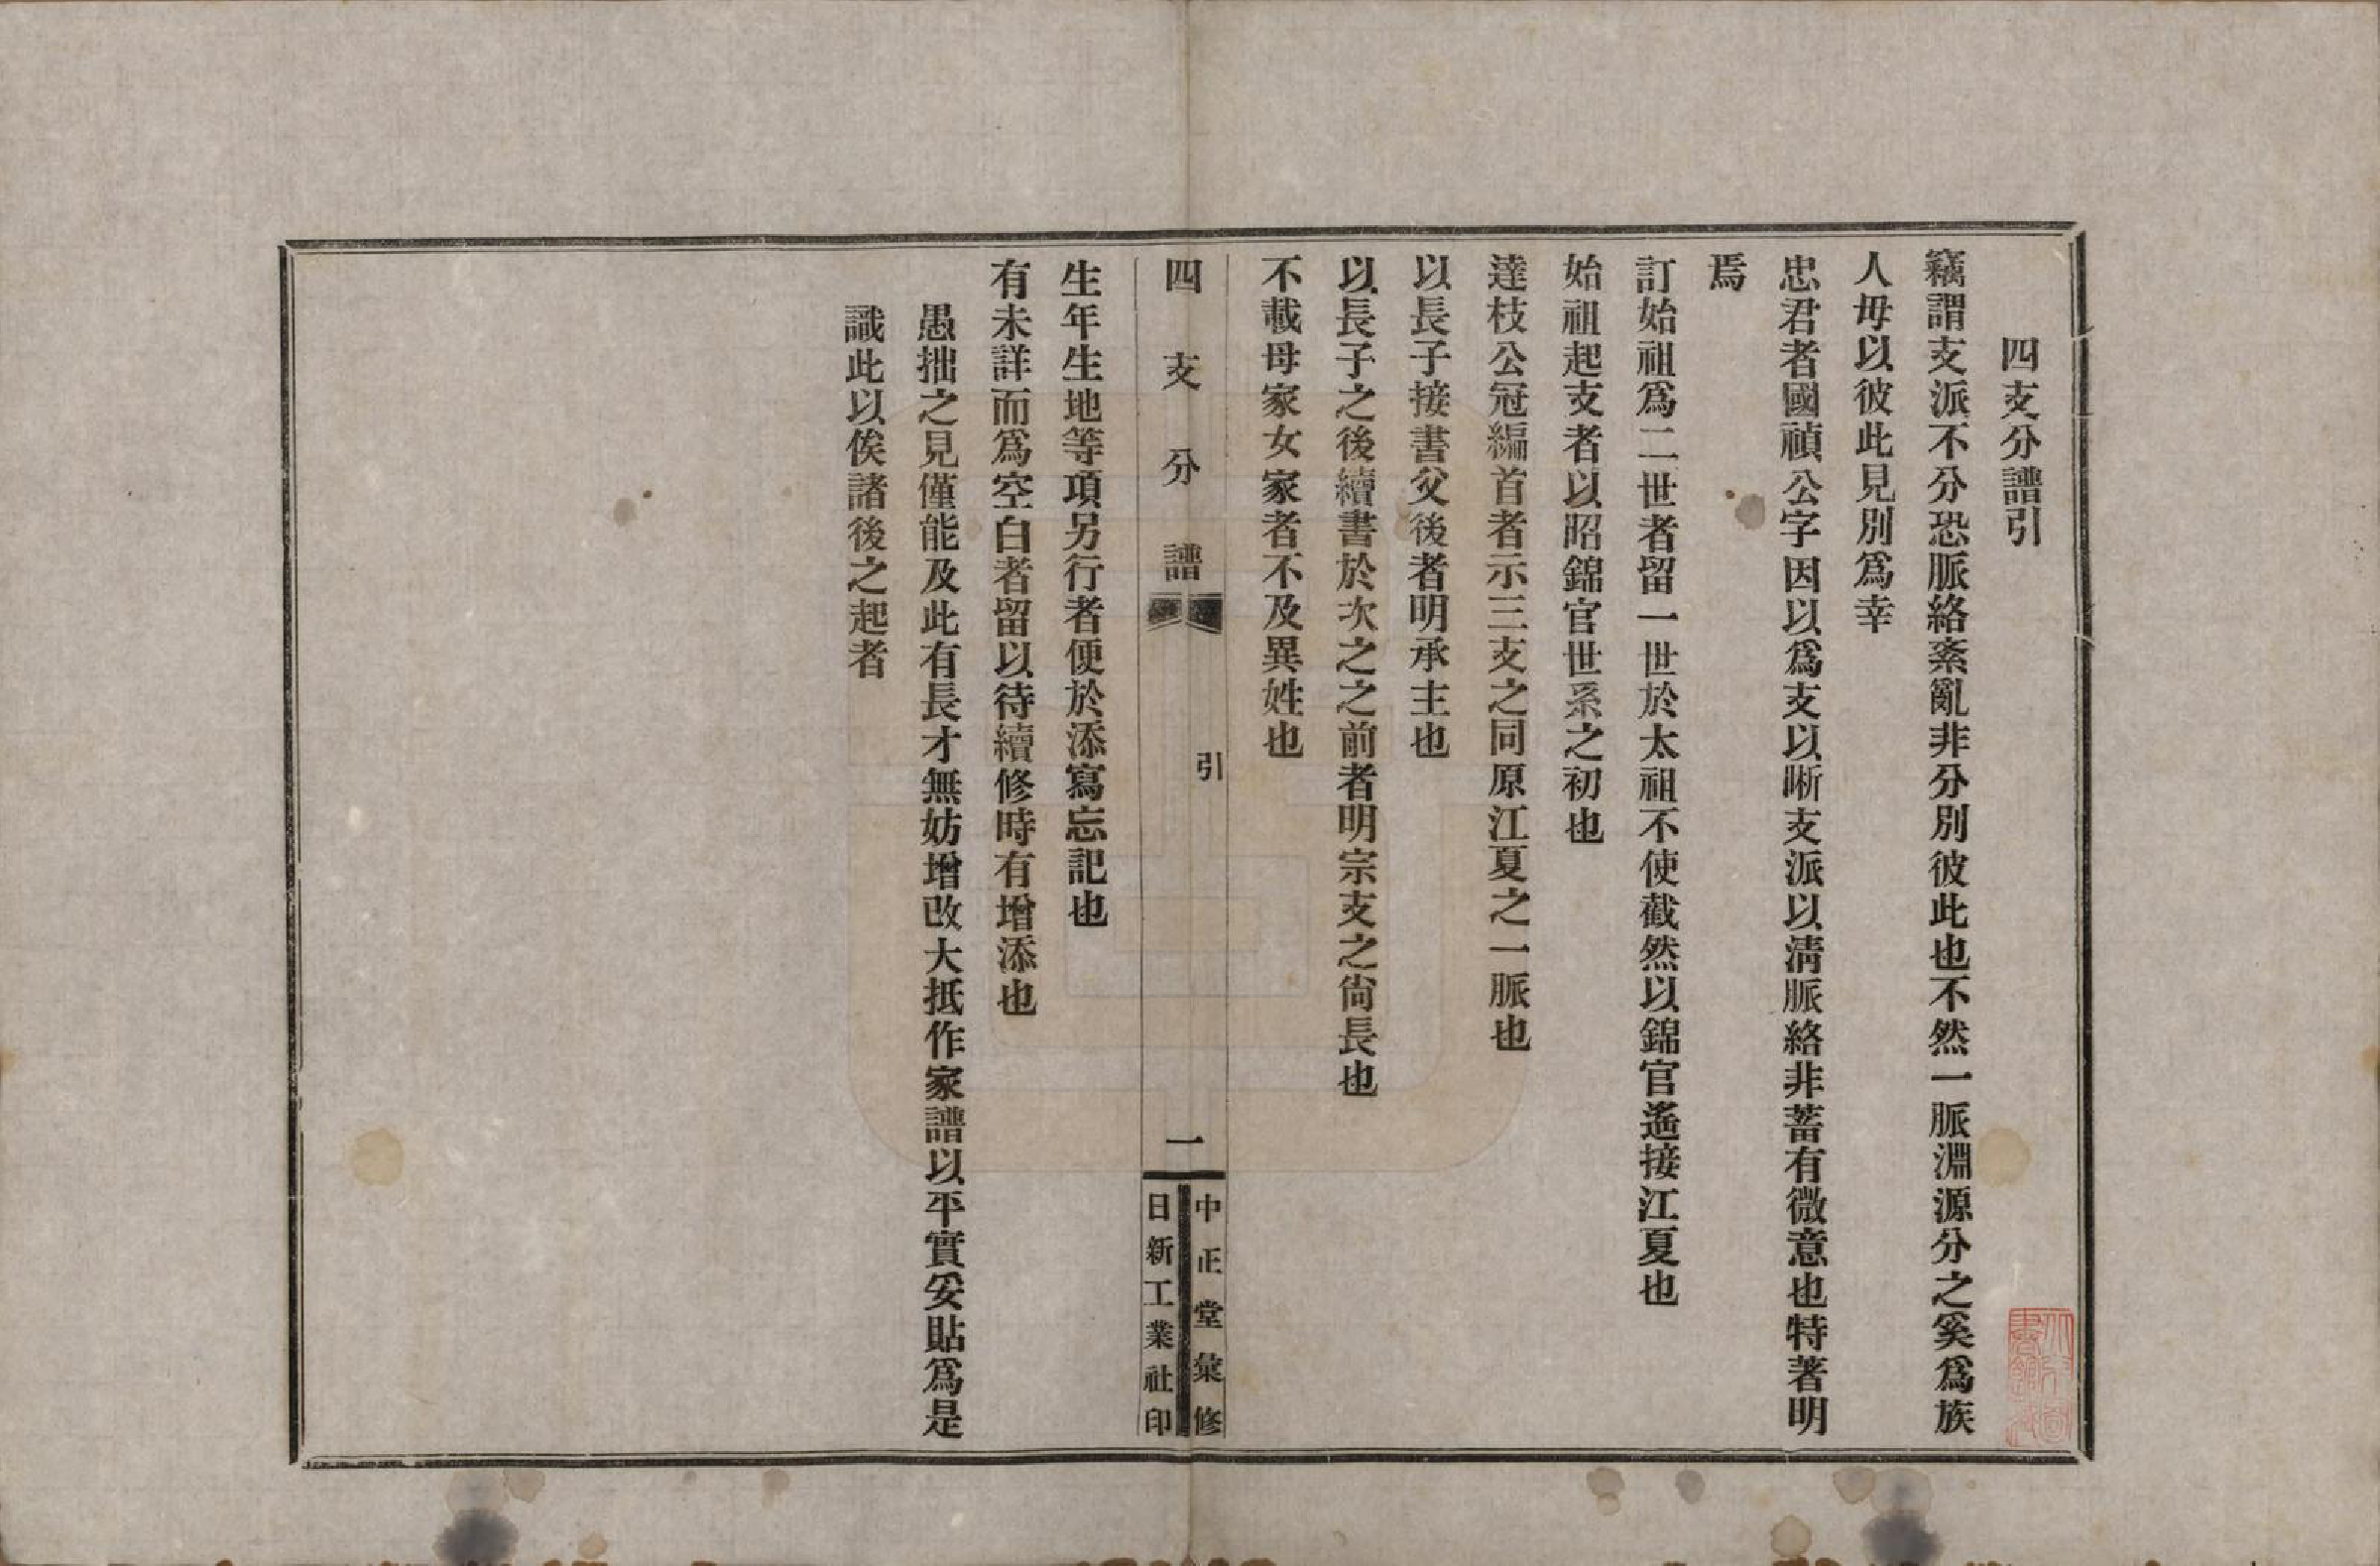 四支分譜引
竊謂支派不分恐脈絡紊亂非分別彼此也不然一脈淵源分之奚爲族
人毋以彼此見別爲幸
忠君者國禎公字因以爲支以晰支派以清脈絡非蓄有微意也特著明
焉
訂始祖爲二世者留一世於太祖不使截然以錦官遙接江夏也
始祖起支者以昭錦官世系之初也
達枝公冠編首者示三支之同原江夏之一脈也
以長子接書父後者明承主也
以長子之後續書於次之之前者明宗支之尙長也
不載母家女家者不及異姓也
四支分譜
引
一
中正堂彙修
日新工業社印
生年生地等項另行者便於添寫忘記也
有未詳而爲空白者留以待續修時有增添也
愚拙之見僅能及此有長才無妨增改大抵作家譜以平實妥貼爲是
識此以俟諸後之起者